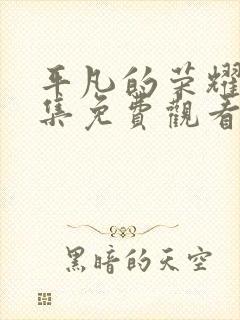 平凡的荣耀
集免費觀看
黑暗的天空